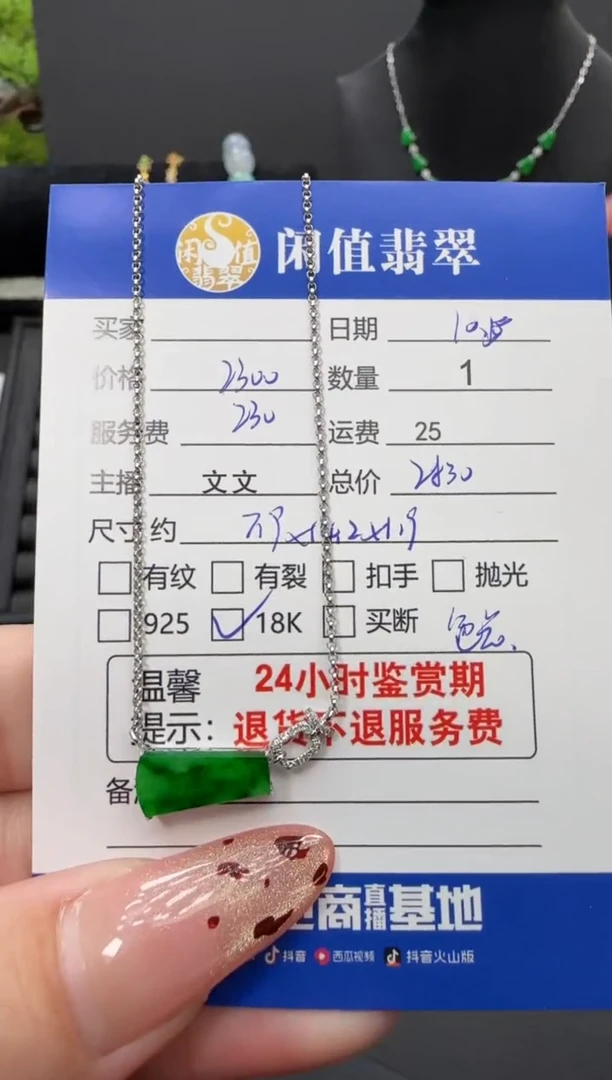 闲值翡翠
闲值翡翠
买家 日期
价格 2300 数量 1
服务费 230 运费 25
主播 文文 总价
尺寸 约
有纹 有裂 扣手 抛光
925 18K 买断
温馨 24小时鉴赏期
提示: 退货不退服务费
备
商直播基地
抖音 西瓜视频 抖音火山版